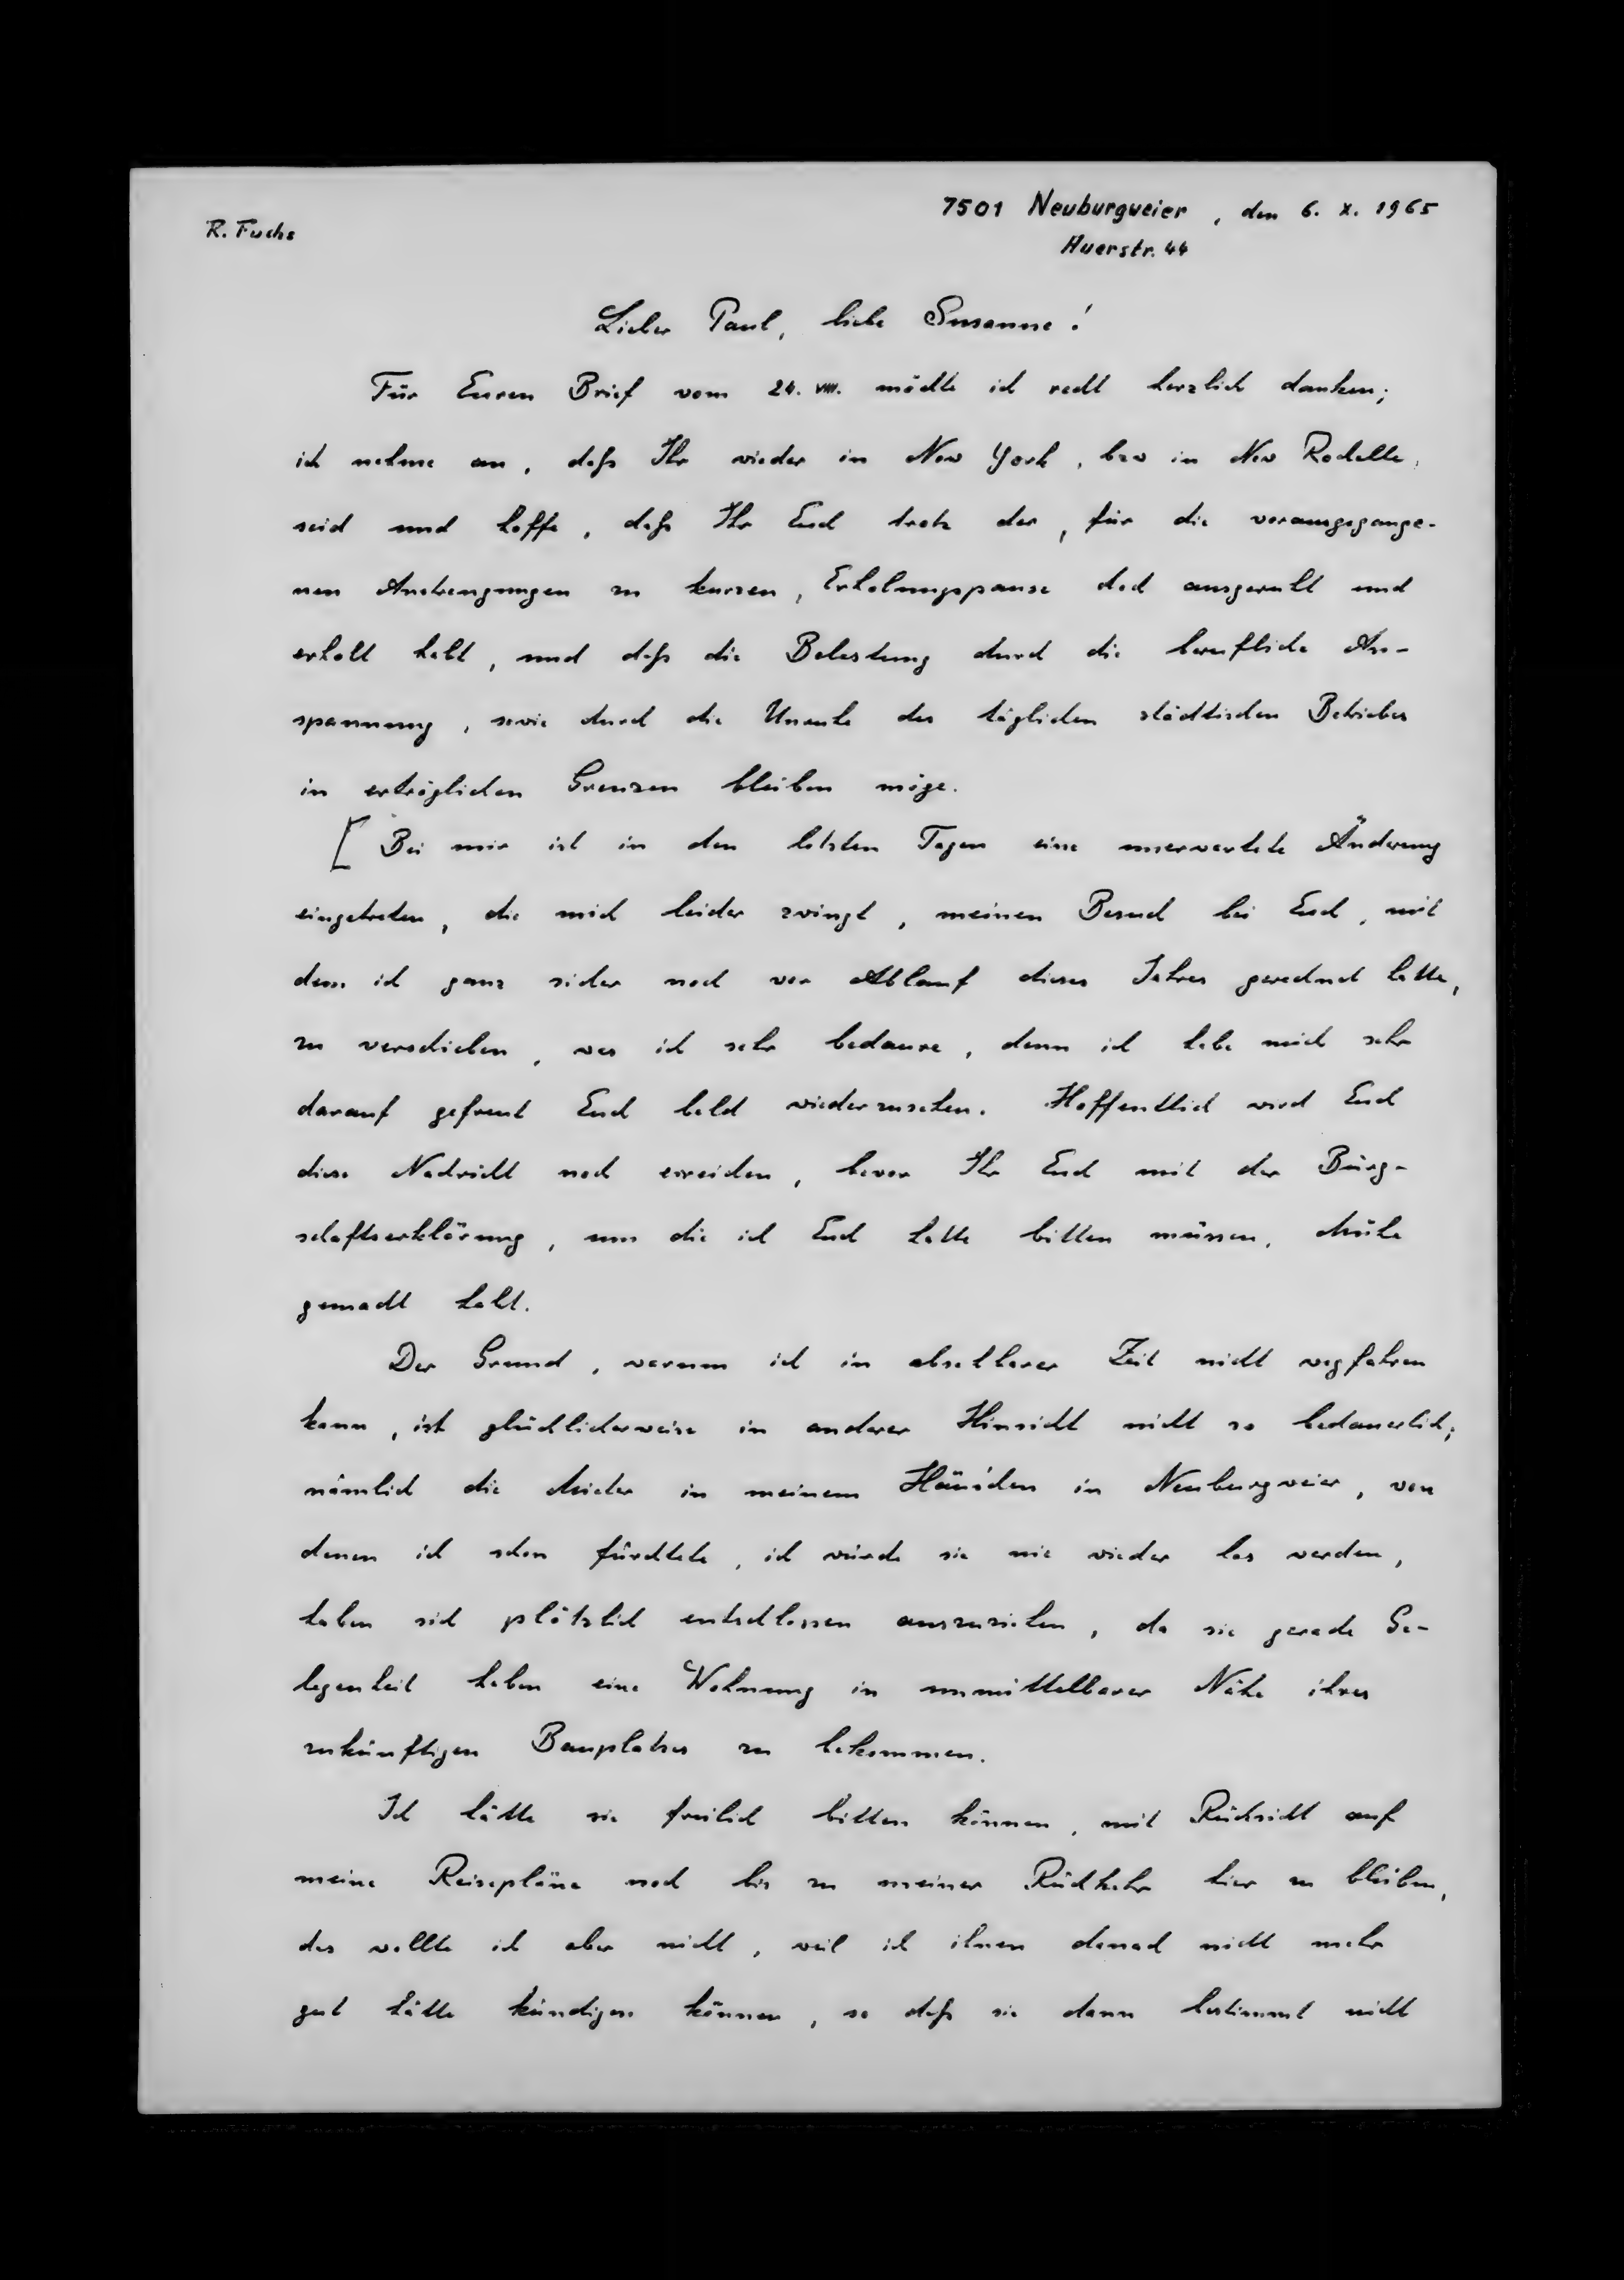 R. Fuchs
7501 Neuburgweier, den 6. X. 1965
Auerstr. 44
Lieber Paul, liebe Susanne!
Für Euren Brief vom 24. VIII. möchte ich recht herzlich danken;
ich nehme an, daß Ihr wieder in New York, bzw in New Rochelle,
seid und hoffe, daß Ihr Euch trotz der, für die vorausgegange-
nen Anstrengungen zu kurzen, Erholungspause doch ausgeruht und
erholt habt, und daß die Belastung durch die berufliche An-
spannung, sowie durch die Unruhe des täglichen städtischen Betriebes
in erträglichen Grenzen bleiben möge.
[ Bei mir ist in den letzten Tagen eine unerwartete Änderung
eingetreten, die mich leider zwingt, meinen Besuch bei Euch, mit
dem ich ganz sicher noch vor Ablauf dieses Jahres gerechnet hatte,
zu verschieben, was ich sehr bedaure, denn ich habe mich sehr
darauf gefreut Euch bald wiederzusehen. Hoffentlich wird Euch
diese Nachricht noch erreichen, bevor Ihr Euch mit der Bürg-
schaftserklärung, um die ich Euch hatte bitten müssen, Mühe
gemacht habt.
Der Grund, warum ich in absehbarer Zeit nicht wegfahren
kann, ist glücklicherweise in anderer Hinsicht nicht so bedauerlich;
nämlich die Mieter in meinem Häuschen in Neuburgweier, von
denen ich schon fürchtete, ich würde sie nie wieder los werden,
haben sich plötzlich entschlossen auszuziehen, da sie gerade Ge-
legenheit haben eine Wohnung in unmittelbarer Nähe ihres
zukünftigen Bauplatzes zu bekommen.
Ich hätte sie freilich bitten können, mit Rücksicht auf
meine Reisepläne noch bis zu meiner Rückkehr hier zu bleiben,
das wollte ich aber nicht, weil ich ihnen danach nicht mehr
gut hätte kündigen können, so daß sie dann bestimmt nicht